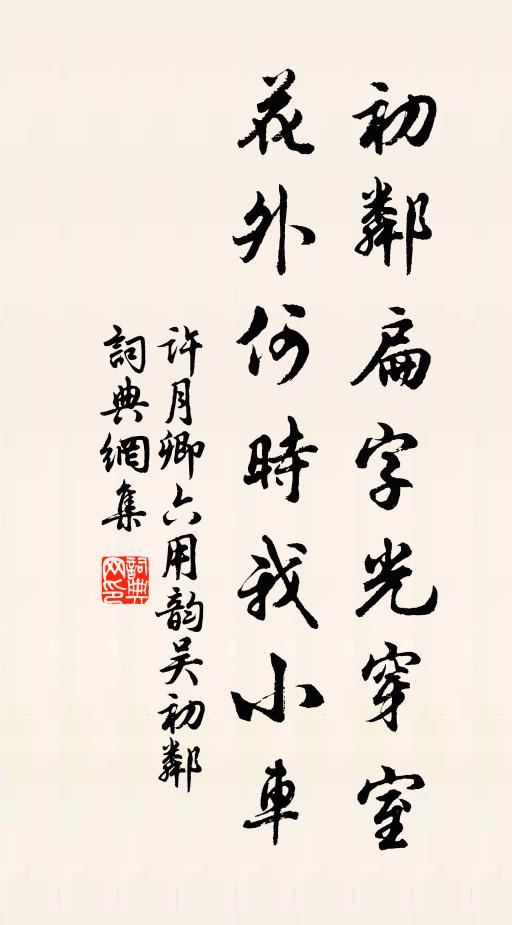 初鄰扁字光穿室
花外何時我小車
許月卿六用韵吴初鄰
詞典網集
詞典网印